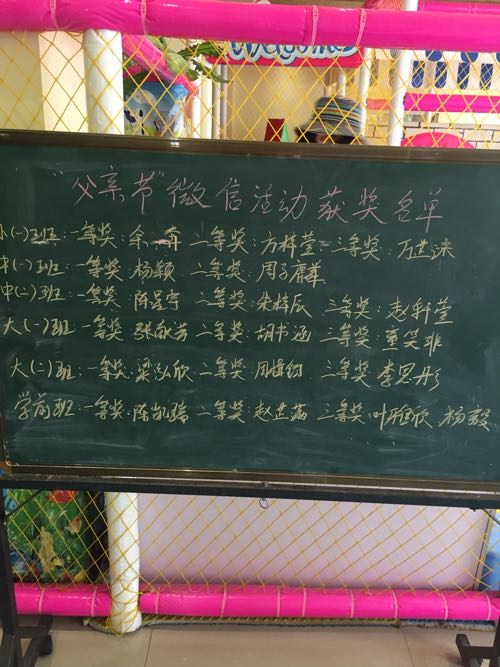 Welcome
"父亲节"微信活动获奖名单
小(一)班:一等奖:余 二等奖:方梓萱 三等奖:万芸涞
中(一)班:一等奖:杨颖 二等奖:周子
中(二)班:一等奖:陈星宇 二等奖:朱梓辰 三等奖:赵轩萱
大(一)班:一等奖:张 二等奖:胡书涵 三等奖:童笑非
大(二)班:一等奖:梁弘欣 二等奖:周 三等奖:李思彤
学前班:一等奖:陈凯 二等奖:赵芷 三等奖:叶雅欣 杨毅